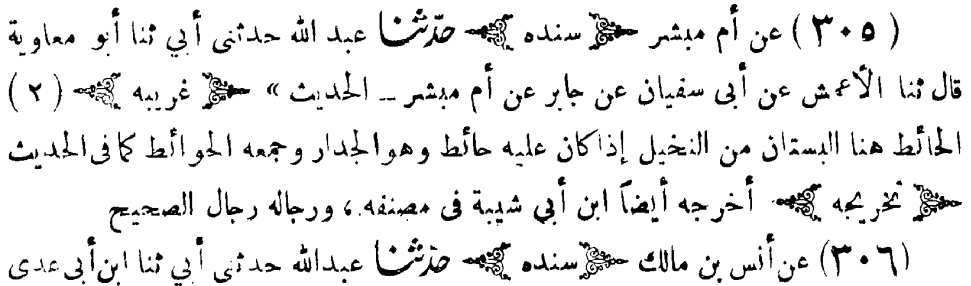 ( ٣٠٥ ) عن أم مبشر ﴿ سنده ﴾ حدّثنا عبد الله حدثنى أبي ثنا أبو معاوية
قال ثنا الأعمش عن أبى سفيان عن جابر عن أم مبشر ــ الحديث » ﴿ غريبه ﴾ ( ٢ )
الحائط هنا البستان من النخيل إذا كان عليه حائط وهو الجدار وجمعه الحوائط كما فى الحديث
﴿ تخريجه ﴾ أخرجه أيضاً ابن أبي شيبة فى مصنفه ، ورجاله رجال الصحيح
(٣٠٦) عن أنس بن مالك ﴿ سنده ﴾ حدّثنا عبد الله حدثنى أبي ثنا ابن أبى عدى